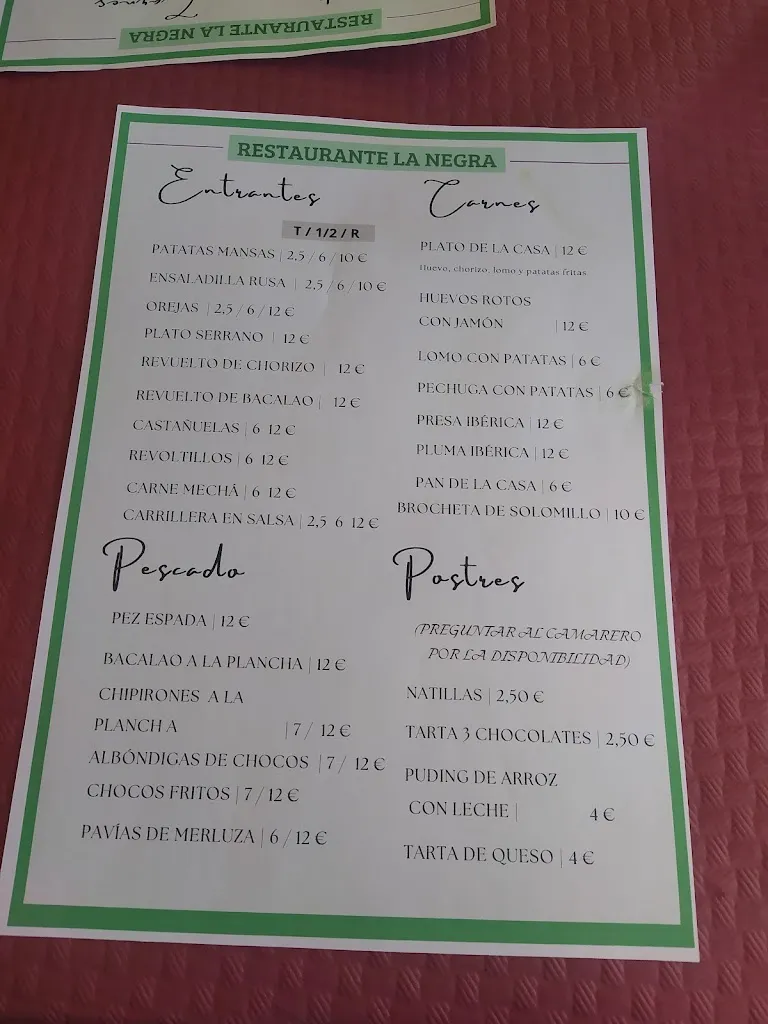 RESTAURANTE LA NEGRA
RESTAURANTE LA NEGRA
Entrantes
T / 1/2 / R
PATATAS MANSAS | 2,5 / 6 / 10 €
ENSALADILLA RUSA | 2,5 / 6 / 10 €
OREJAS | 2,5 / 6 / 12 €
PLATO SERRANO | 12 €
REVUELTO DE CHORIZO | 12 €
REVUELTO DE BACALAO | 12 €
CASTAÑUELAS | 6 12 €
REVOLTILLOS | 6 12 €
CARNE MECHÁ | 6 12 €
CARRILLERA EN SALSA | 2,5 6 12 €
Pescado
PEZ ESPADA | 12 €
BACALAO A LA PLANCHA | 12 €
CHIPIRONES A LA
PLANCH A | 7 / 12 €
ALBÓNDIGAS DE CHOCOS | 7 / 12 €
CHOCOS FRITOS | 7 / 12 €
PAVÍAS DE MERLUZA | 6 / 12 €
Carnes
PLATO DE LA CASA | 12 €
Huevo, chorizo, lomo y patatas fritas
HUEVOS ROTOS
CON JAMÓN | 12 €
LOMO CON PATATAS | 6 €
PECHUGA CON PATATAS | 6 €
PRESA IBÉRICA | 12 €
PLUMA IBÉRICA | 12 €
PAN DE LA CASA | 6 €
BROCHETA DE SOLOMILLO | 10 €
Postres
(PREGUNTAR AL CAMARERO
POR LA DISPONIBILIDAD)
NATILLAS | 2,50 €
TARTA 3 CHOCOLATES | 2,50 €
PUDING DE ARROZ
CON LECHE | 4 €
TARTA DE QUESO | 4 €